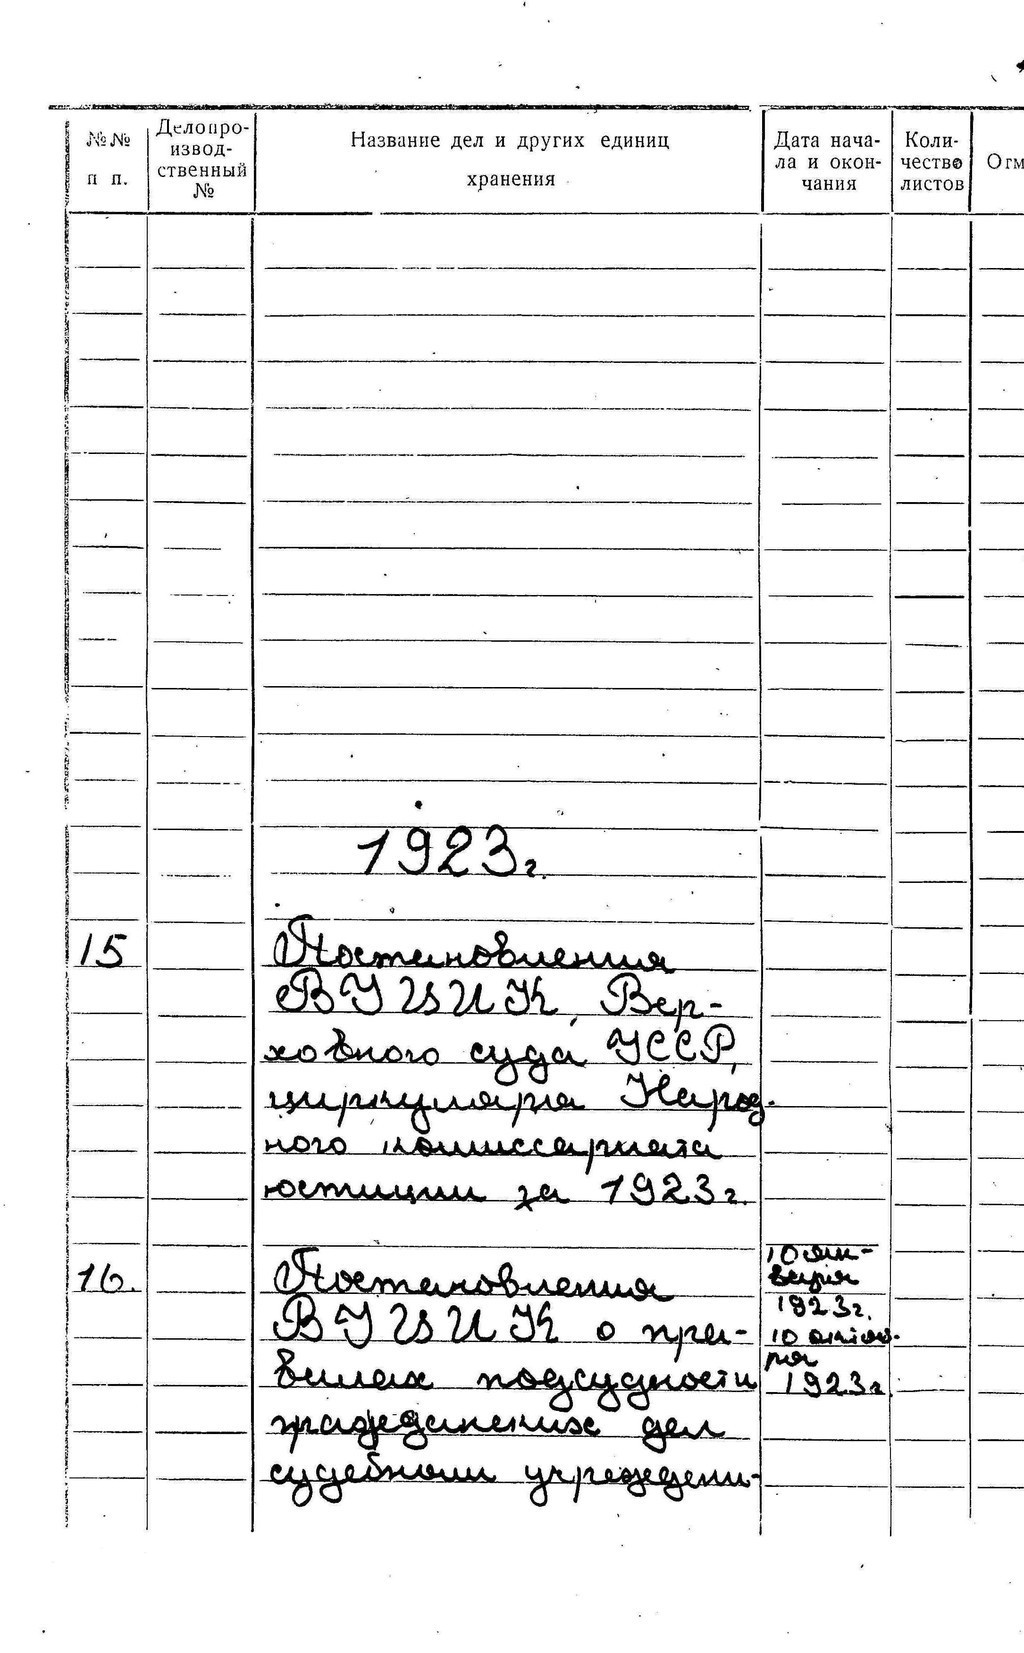 №№ п п.
Делопро-
извод-
ственный
№
Название дел и других единиц
хранения
Дата нача-
ла и окон-
чания
Коли-
чество
листов
Отм
1923г.
15
Постановления
ВУЦИК, Вер-
ховного суда УССР,
циркуляры Народ-
ного комиссариата
юстиции за 1923г.
16.
Постановления
ВУЦИК о пра-
вилах подсудности
гражданских дел
судебным учреждени-
10 ян-
варя
1923г.
10 октяб-
ря
1923г